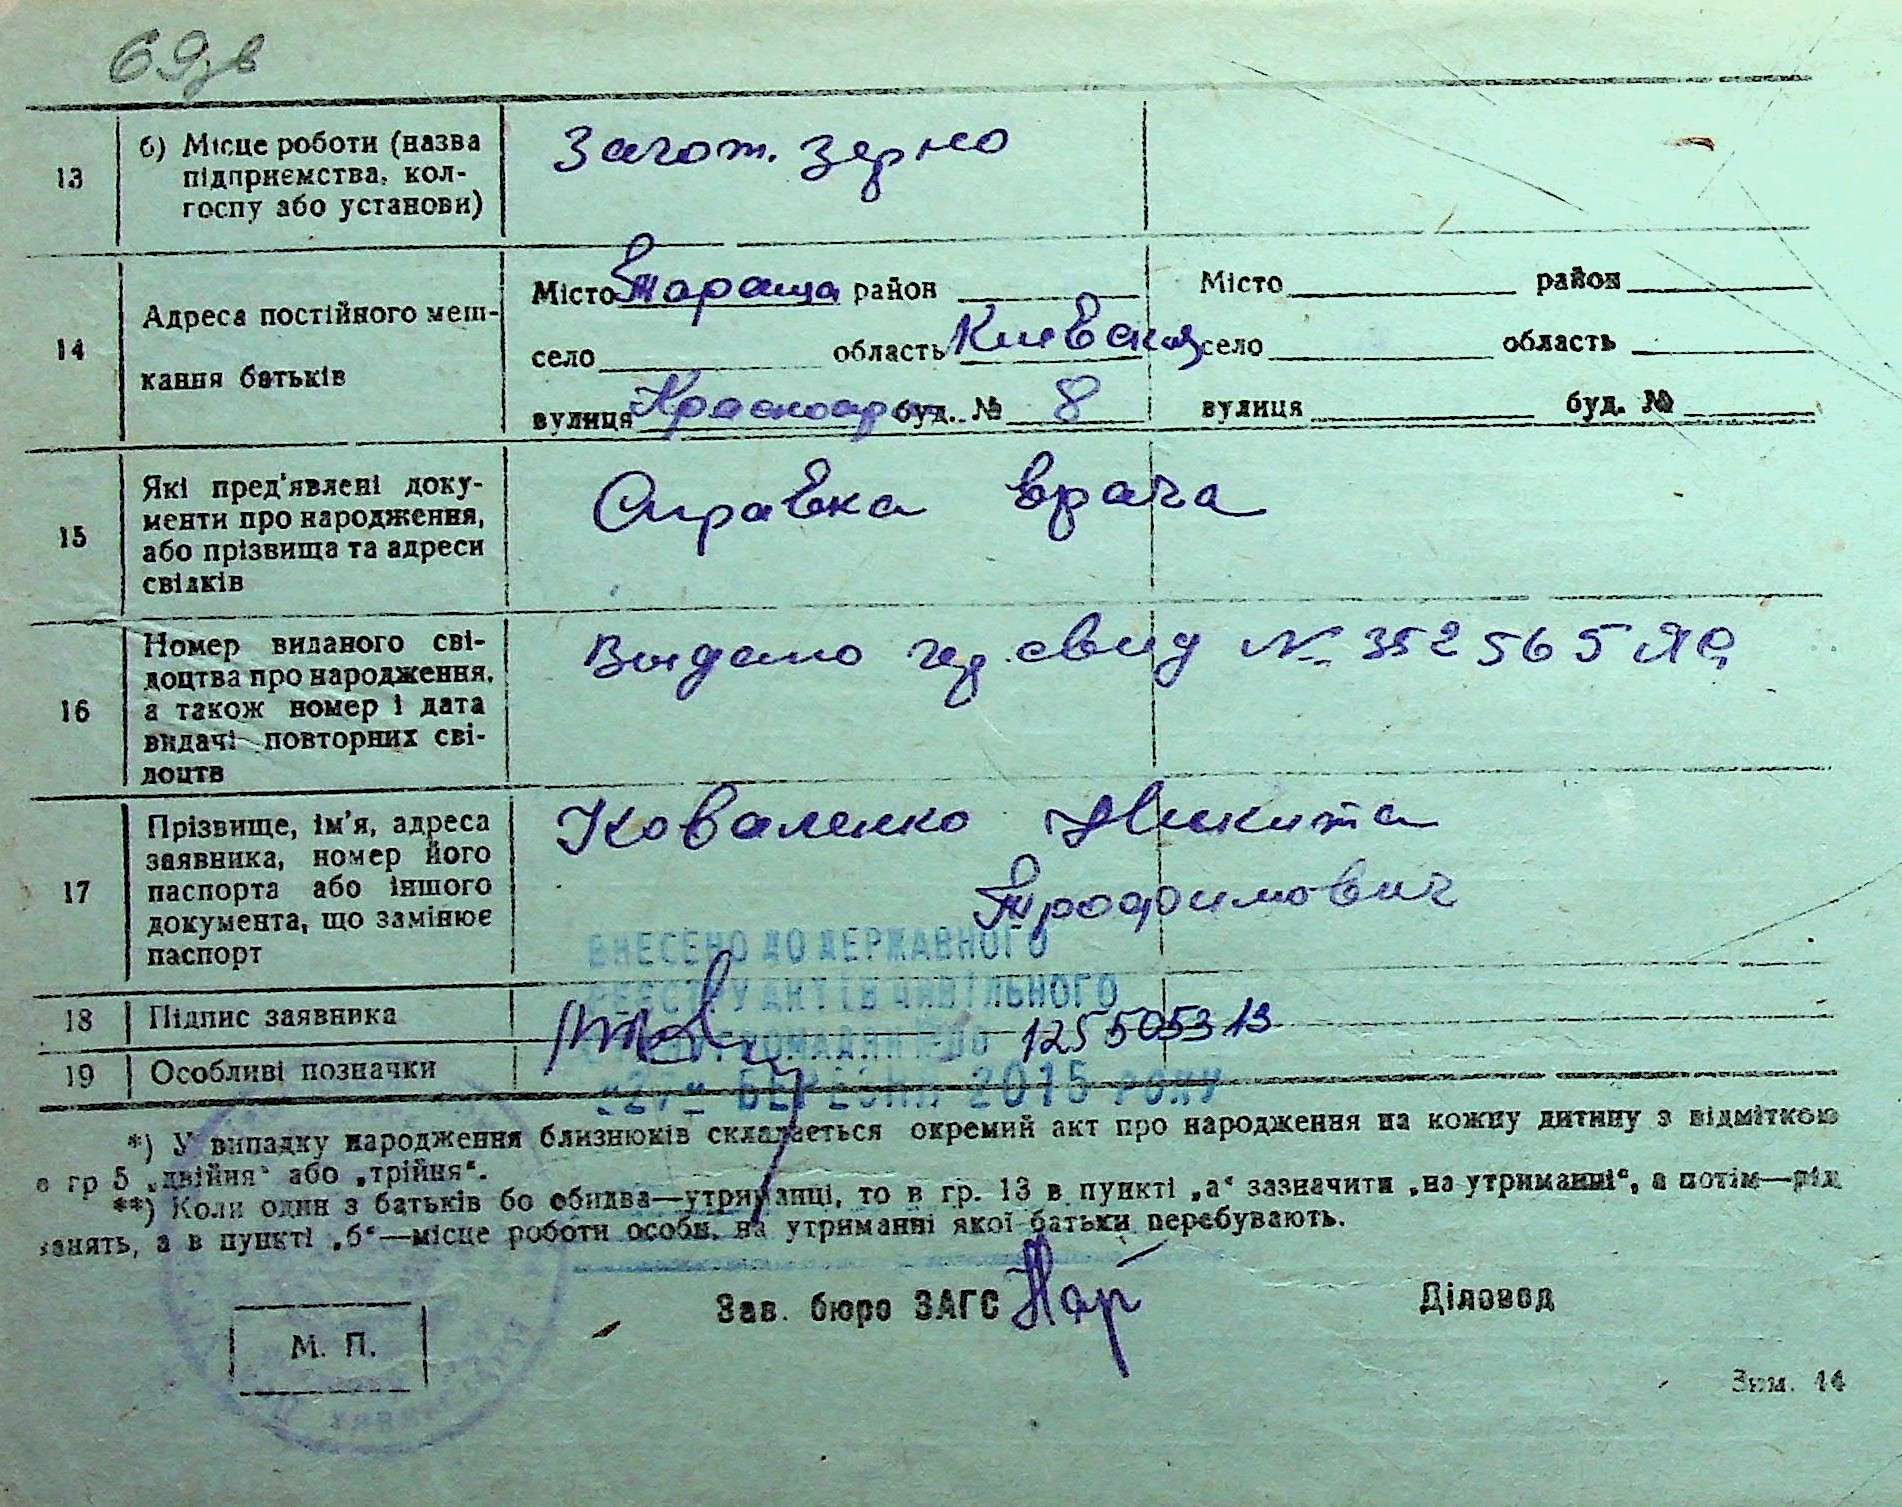 69зв
13
б) Місце роботи (назва
підприємства, кол-
госпу або установи)
Загот. зерно
14
Адреса постійного меш-
кання батьків
Місто Тараща район
село область Киевская
вулиця Красноар буд. № 8
Місто район
село область
вулиця буд. №
15
Які пред'явлені доку-
менти про народження,
або прізвища та адреси
свідків
Справка врача
16
Номер виданого сві-
доцтва про народження,
а також номер і дата
видачі повторних сві-
доцтв
Выдано свид № 352565 ЯС
17
Прізвище, ім'я, адреса
заявника, номер його
паспорта або іншого
документа, що замінює
паспорт
Коваленко Никита
Трофимович
ВНЕСЕНО ДО ДЕРЖАВНОГО
РЕЄСТРУ АКТІВ ЦИВІЛЬНОГО
ГРОМАДЯН ПО 125505313
"27" БЕРЕЗНЯ 2015 РОКУ
18
Підпис заявника
19
Особливі позначки
*) У випадку народження близнюків складається окремий акт про народження на кожну дитину з відміткою
в гр 5 „двійня“ або „трійня“.
**) Коли один з батьків бо обидва—утриманці, то в гр. 13 в пункті „а“ зазначити „на утриманні“, а потім—рід
занять, а в пункті „б“—місце роботи особи, на утриманні якої батьки перебувають.
Зав. бюро ЗАГС Нар
Діловод
М. П.
Зам. 14